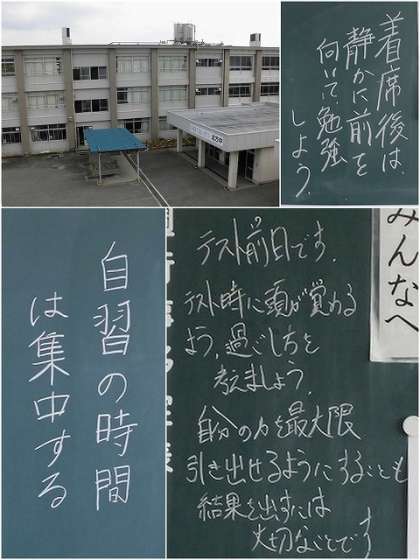 着席後は、
静かに前を
向いて、勉強
しよう。
自習の時間
は集中する
みんなへ
テスト前日です。
テスト時に頭が覚める
よう、過ごし方を
考えましょう。
自分の力を最大限
引き出せるようにすることも
結果を出すには
大切なことです